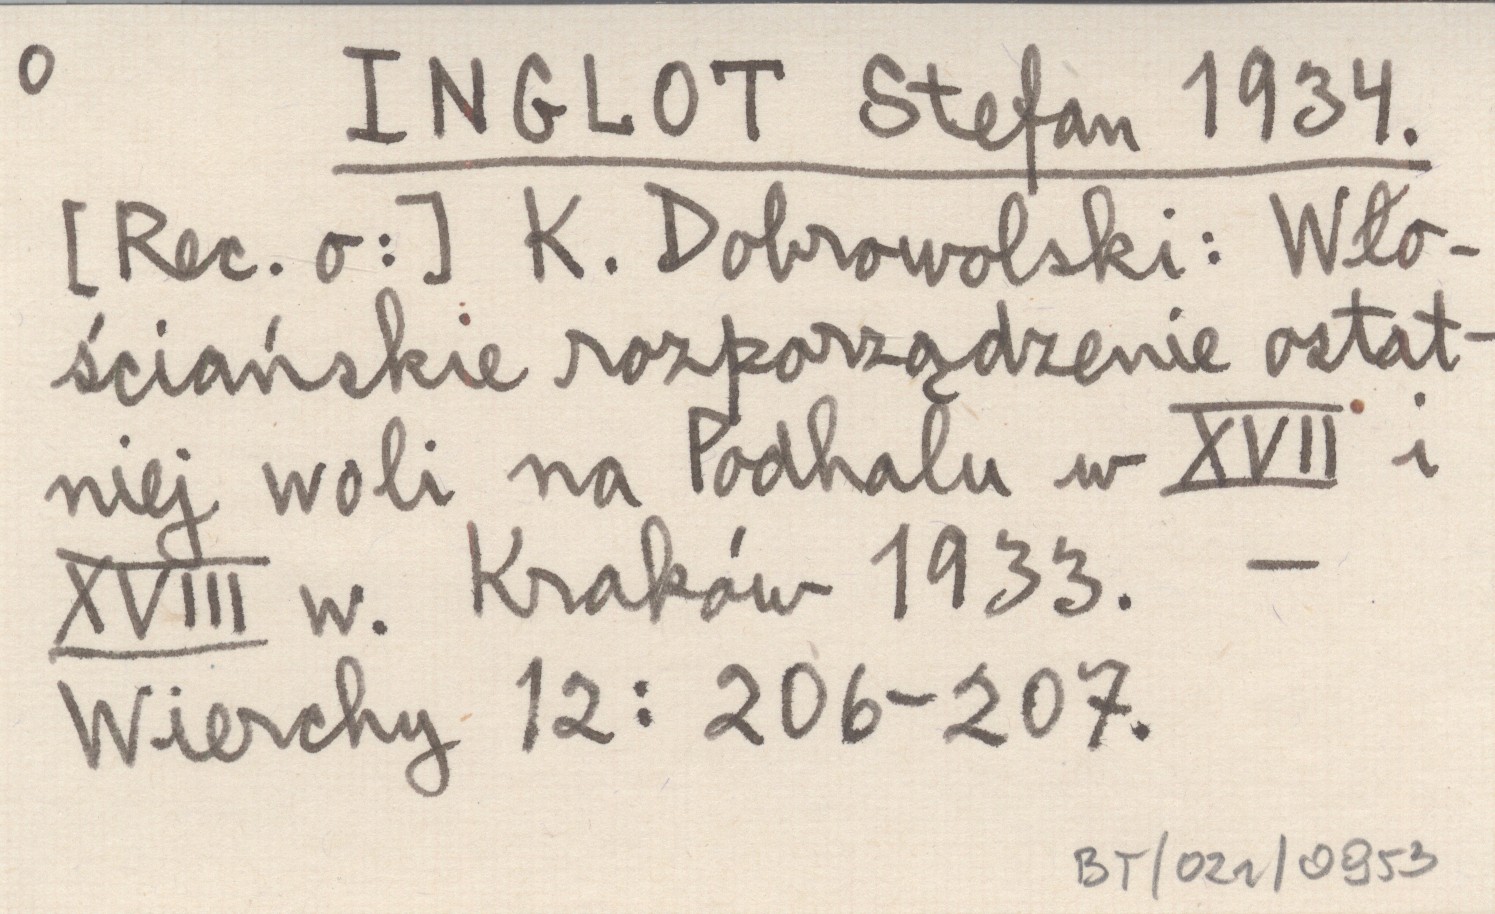 o
INGLOT Stefan 1934.
[Rec. o:] K. Dobrowolski: Wło-
ściańskie rozporządzenie ostat-
niej woli na Podhalu w XVII i
XVIII w. Kraków 1933. —
Wierchy 12: 206-207.
BT/021/0953